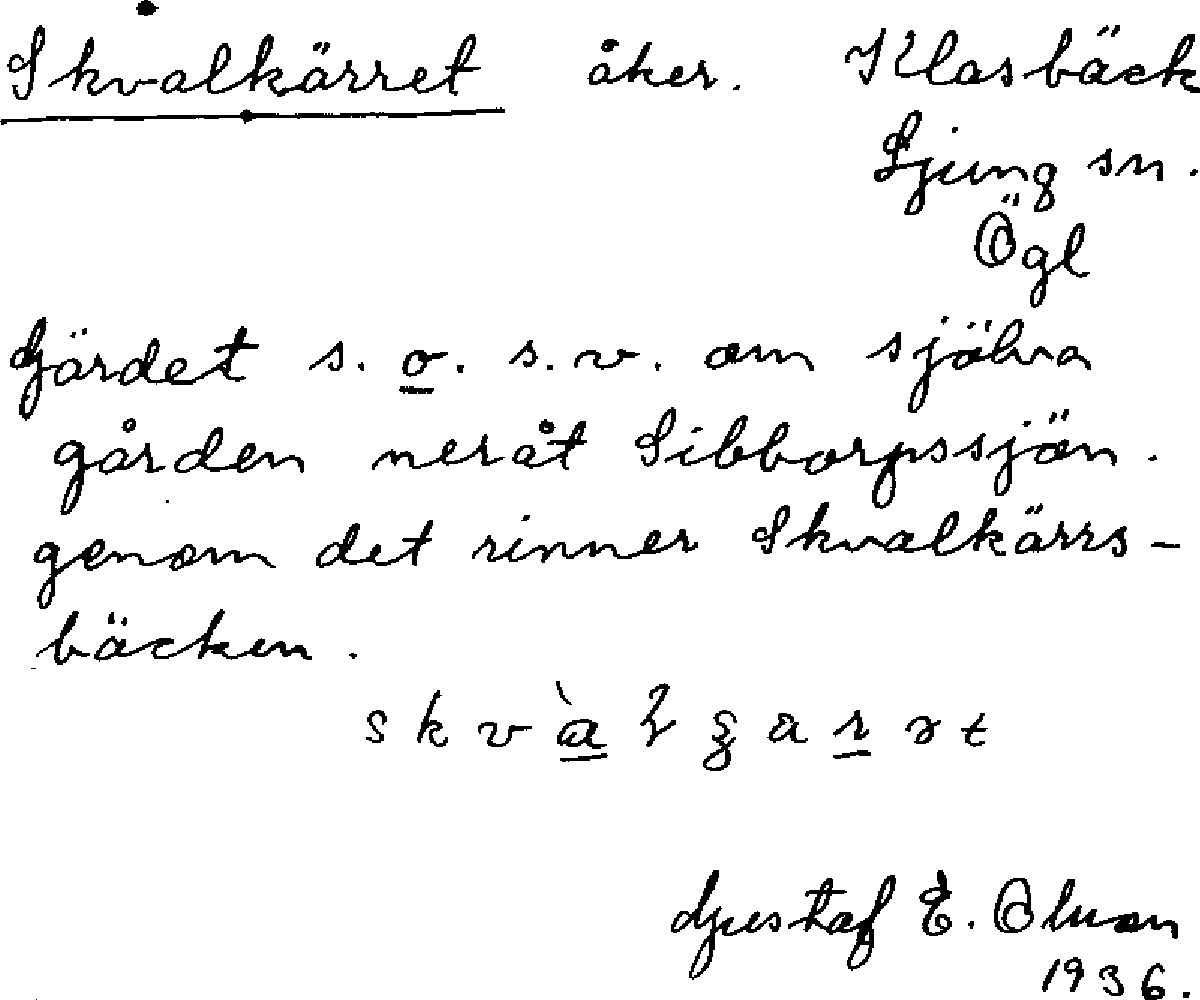 Skvalkärret åker. Klasbäck
Ljung sn.
Ögl
Gärdet s. o. s.v. om själva
gården neråt Sibborpssjön.
genom det rinner Skvalkärrs-
bäcken.
Gustaf E. Olson
1936.